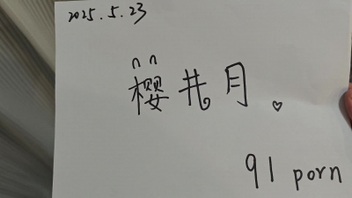 2025.5.23
樱井月。♡
91 porn